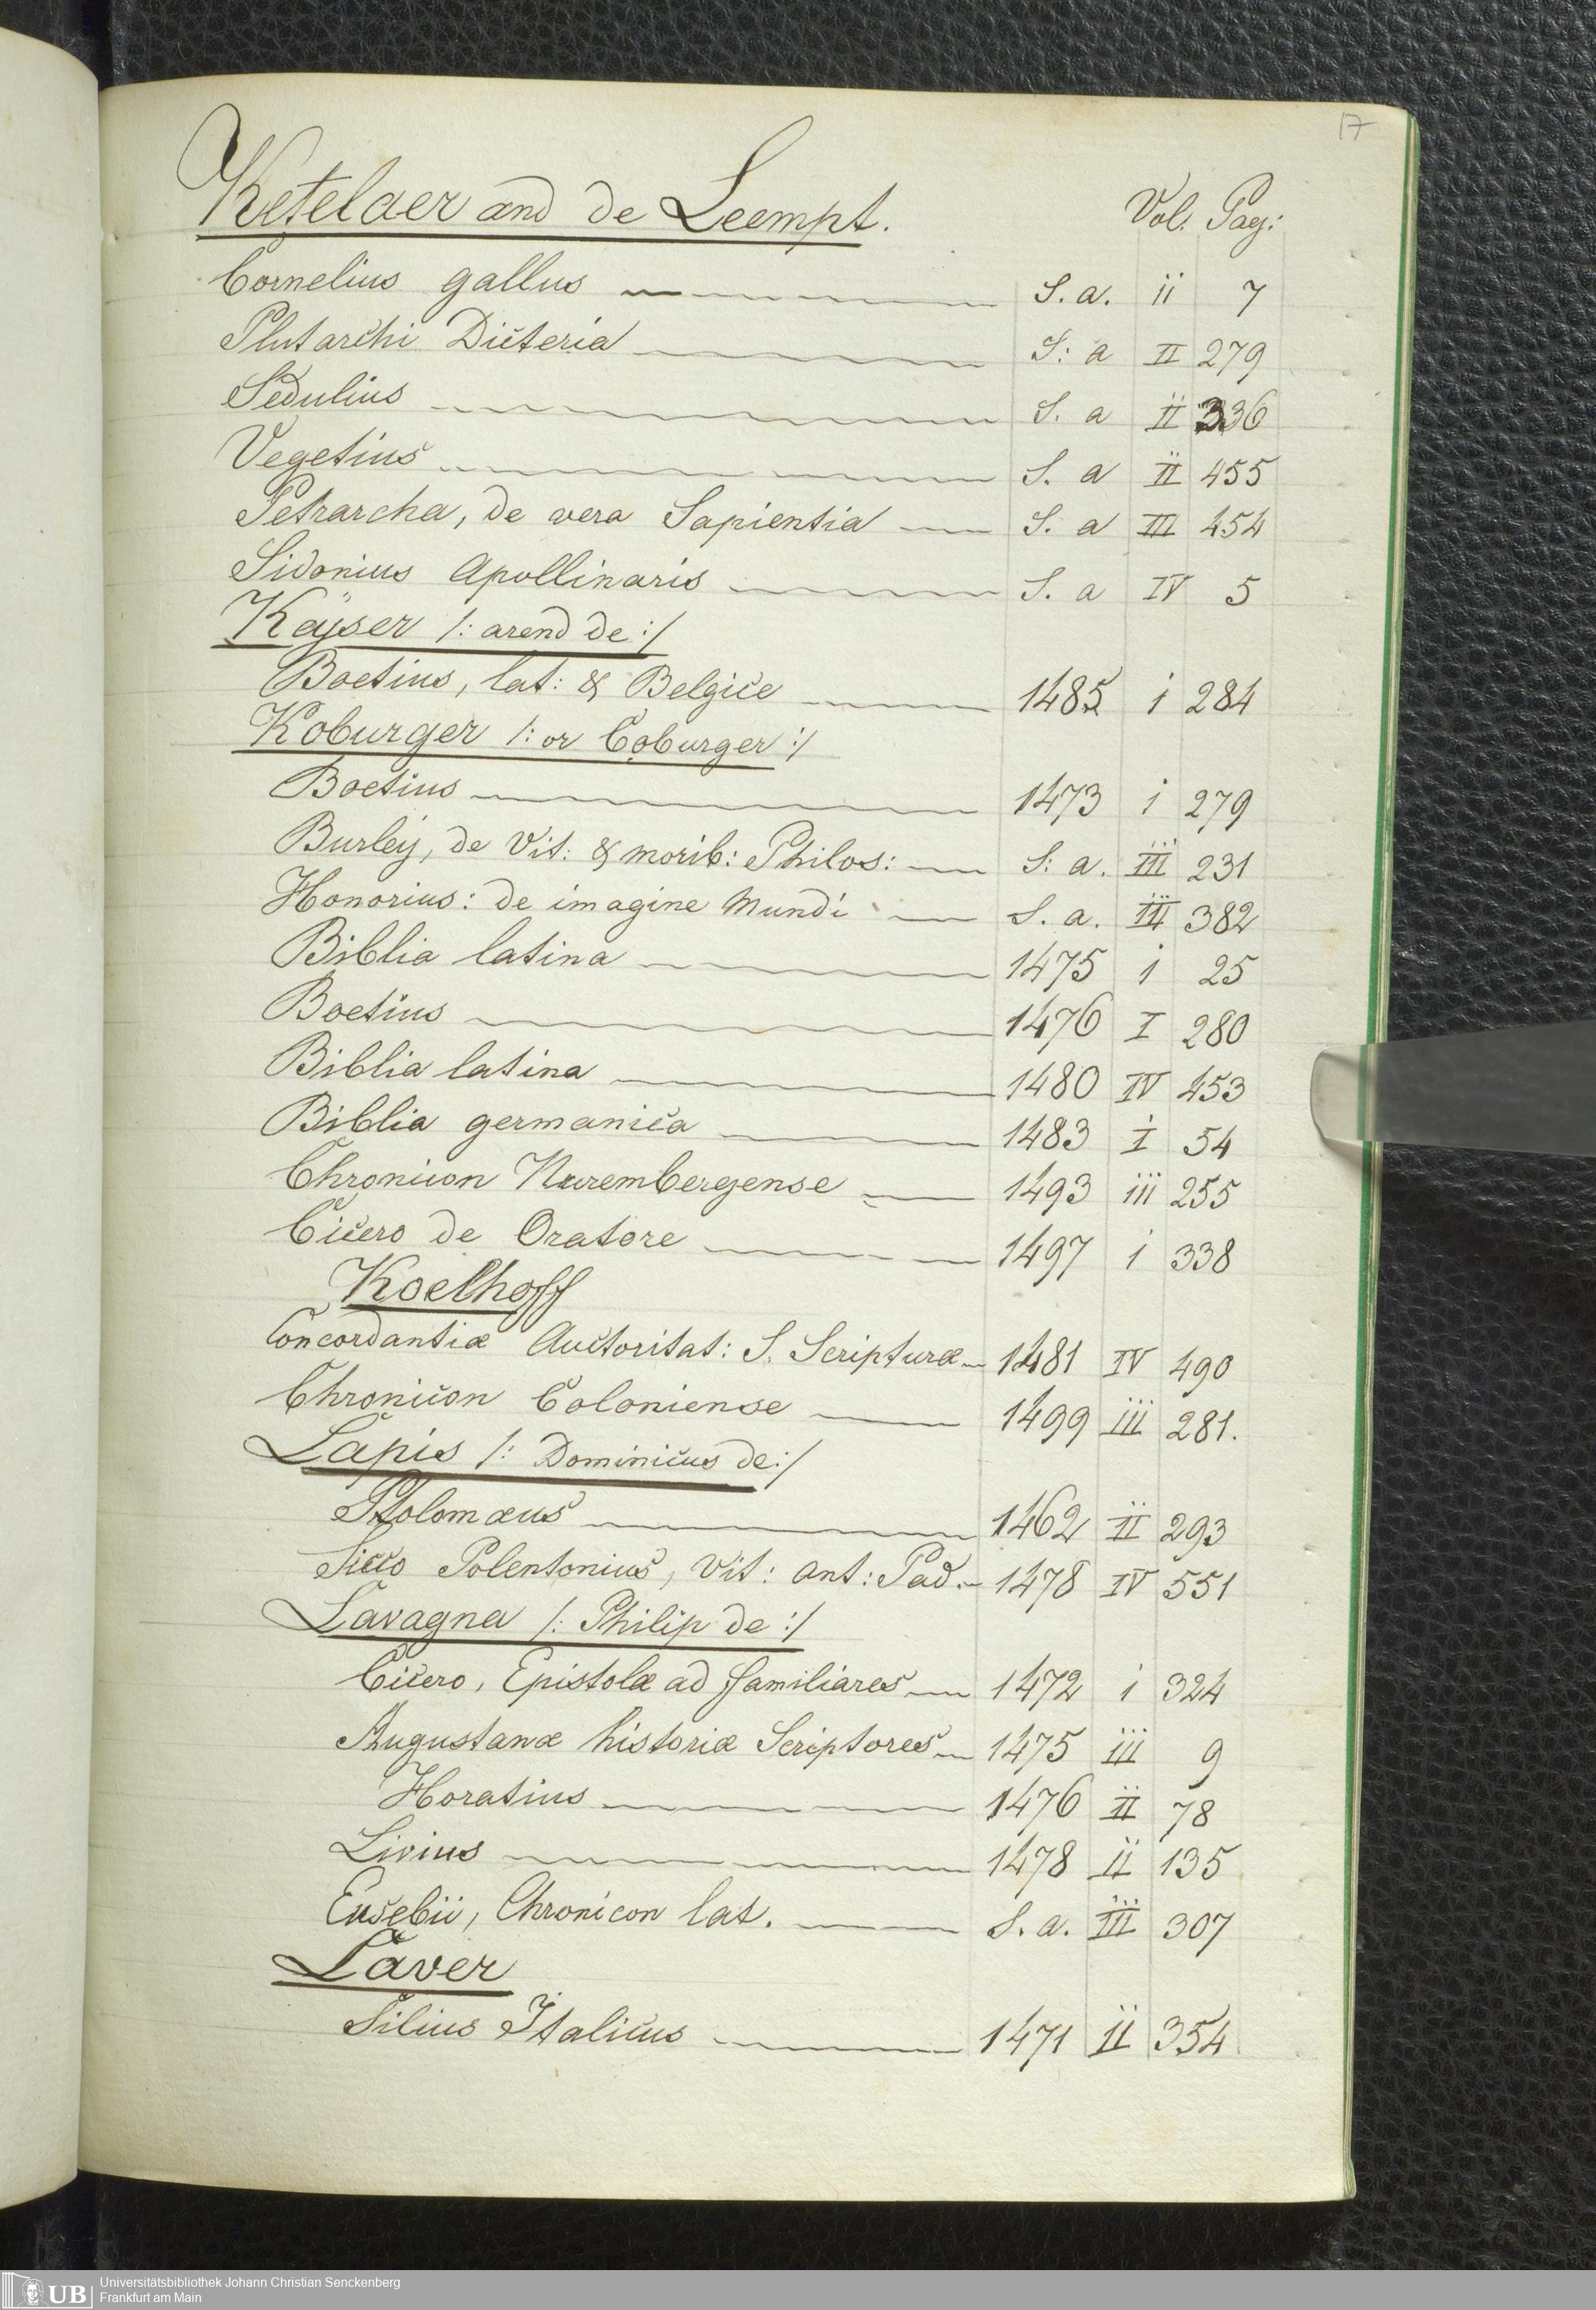 17
Ketelaer and de Leempt. Vol. Pag:
Cornelius gallus S. a. ii 7
Plutarchi Dicteria S: a II 279
Sedulius S. a II 336
Vegetius S. a II 455
Petrarcha, de vera Sapientia S. a III 454
Sidonius Apollinaris S. a IV 5
Kaÿser /: arend de :/
Boetius, lat: & Belgice 1485 i 284
Koburger /: or Coburger :/
Boetius 1473 i 279
Burleÿ, de Vit: & morib: Philos: S: a. III 231
Honorius: de imagine Mundi S. a. III 382
Biblia latina 1475 i 25
Boetius 1476 I 280
Biblia latina 1480 IV 453
Biblia germanica 1483 I 54
Chronicon Nurembergense 1493 iii 255
Cicero de Oratore 1497 i 338
Koelhoff
Concordantiæ Auctoritat: S. Scripturæ 1481 IV 490
Chronicon Coloniense 1499 iii 281.
Lapis /: Dominicus de :/
Ptolomæus 1462 II 293
Sicco Polentonius, Vit: Ant: Pad. 1478 IV 551
Lavagna /: Philip de :/
Cicero, Epistolæ ad familiares 1472 i 324
Augustanæ historiæ Scriptores 1475 iii 9
Horatius 1476 II 78
Livius 1478 II 135
Eusebii, Chronicon lat. S. a. III 307
Laver
Silius Italicus 1471 II 354
UB
Universitätsbibliothek Johann Christian Senckenberg
Frankfurt am Main